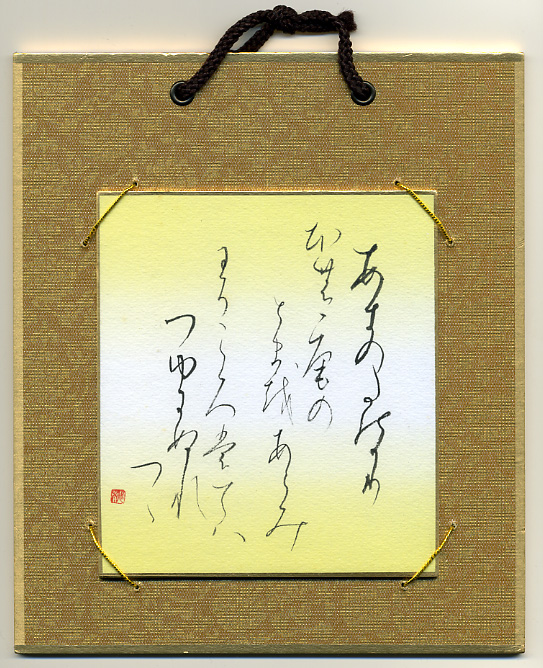 あきのたのかり
ほの庵の
とま越あらみ
わかころ裳て八
つゆ尓ぬれ
つゝ